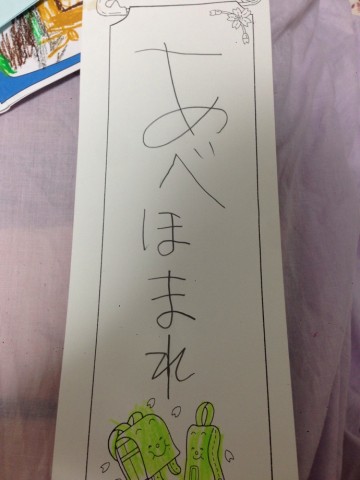 あべほまれ